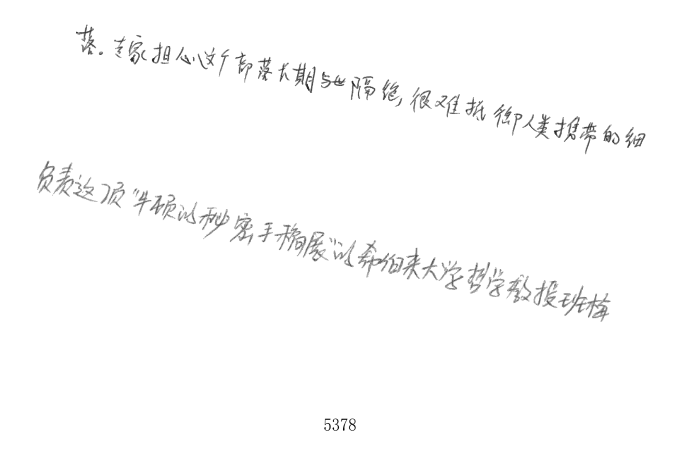 落。专家担心这个部落长期与世隔绝,很难抵御人类携带的细
负责这项“牛顿的秘密手稿展”的希伯来大学哲学教授班梅
5378